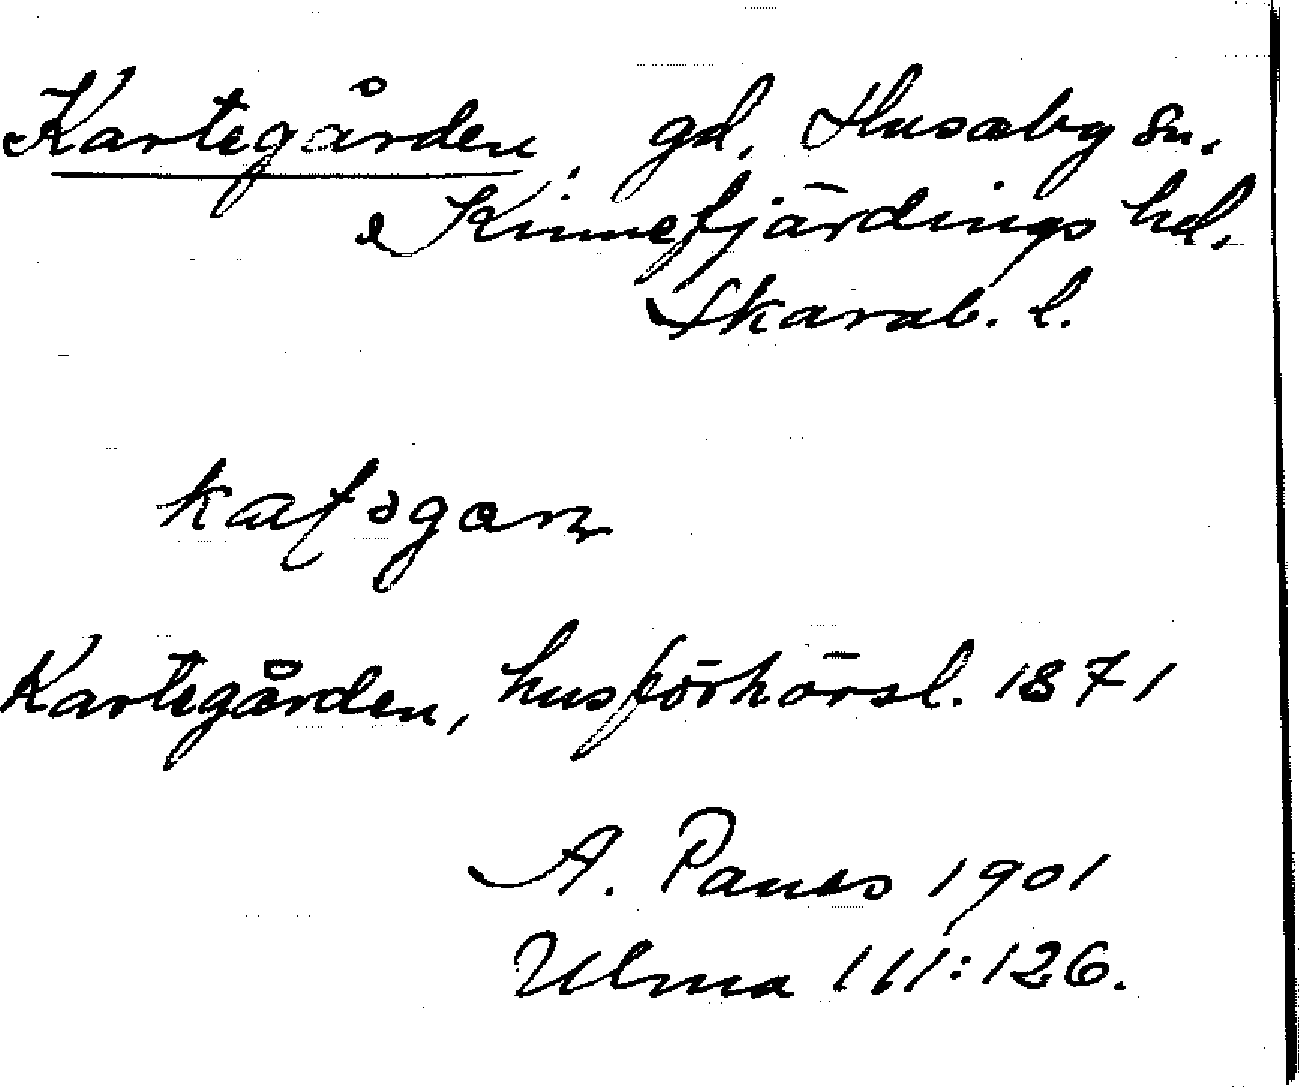 Kartegården, gd, Husaby sn.
Kinnefjärdings hd.
Skarab. l.
kaſəgaɳ
Kartegården, husförhörsl. 1871
A. Panes 1901
Ulma 111:126.